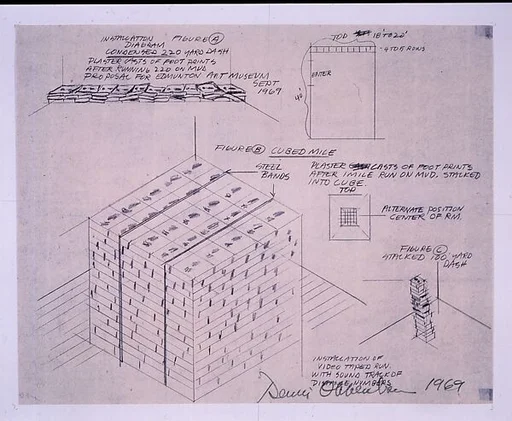 INSTALLATION FIGURE A
DIAGRAM
CONDENSED 220 YARD DASH
PLASTER CASTS OF FOOT PRINTS
AFTER RUNNING 220 ON MUD.
PROPOSAL FOR EDMUNTON ART MUSEUM
SEPT
1969
TOP 18'TO20'
4 TO 5 ROWS
ENTER
40'
FIGURE B CUBED MILE
STEEL
BANDS
PLASTER CASTS OF FOOT PRINTS
AFTER 1 MILE RUN ON MUD. STACKED
INTO CUBE.
TOP
ALTERNATE POSITION
CENTER OF RM.
FIGURE C
STACKED 100 YARD
DASH
INSTALLATION OF
VIDEO TAPED RUN
WITH SOUND TRACK OF
DISTANCE NUMBERS
Dennis Oppenheim 1969